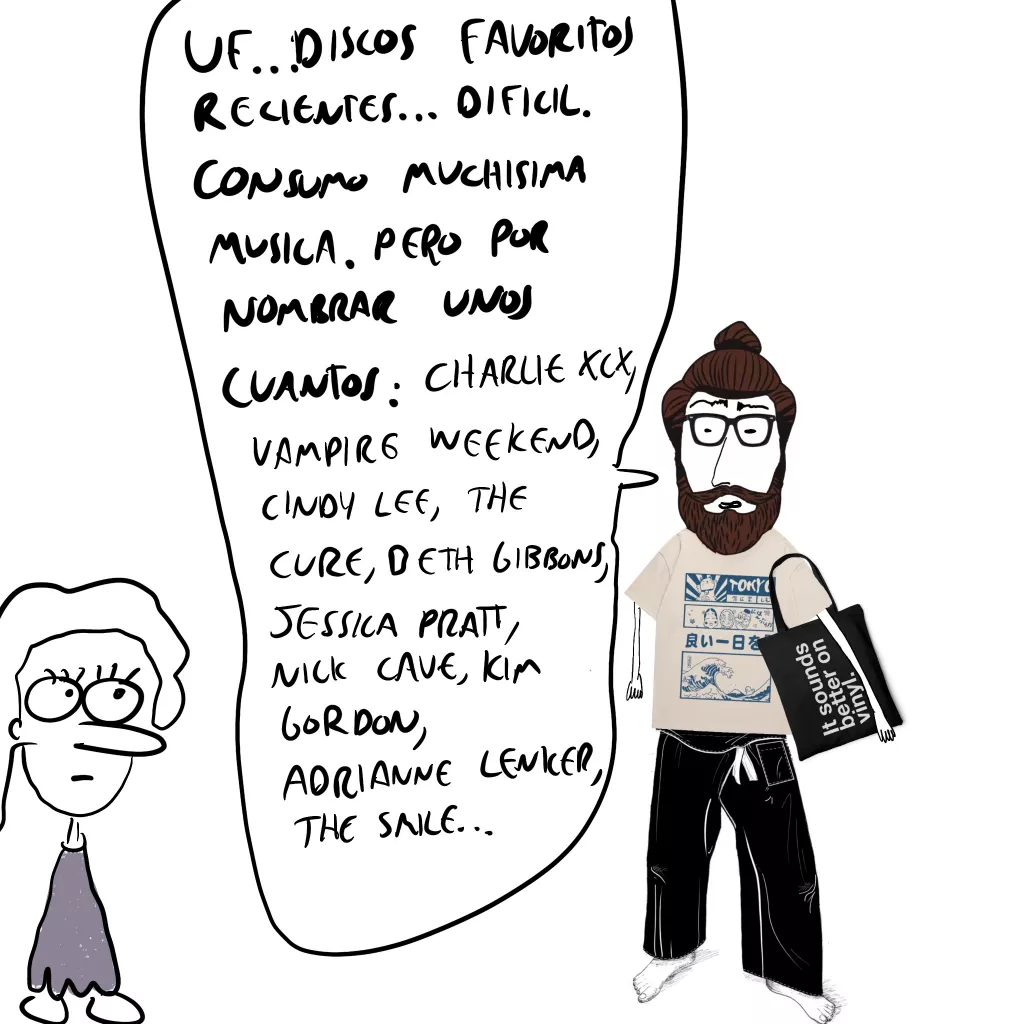 UF...DISCOS FAVORITOS
RECIENTES... DIFICIL.
CONSUMO MUCHISIMA
MUSICA. PERO POR
NOMBRAR UNOS
CUANTOS: CHARLIE XCX,
VAMPIRE WEEKEND,
CINDY LEE, THE
CURE, BETH GIBBONS,
JESSICA PRATT,
NICK CAVE, KIM
GORDON,
ADRIANNE LENKER,
THE SMILE...
TOKYO
良い一日を
It sounds
better on
vinyl.